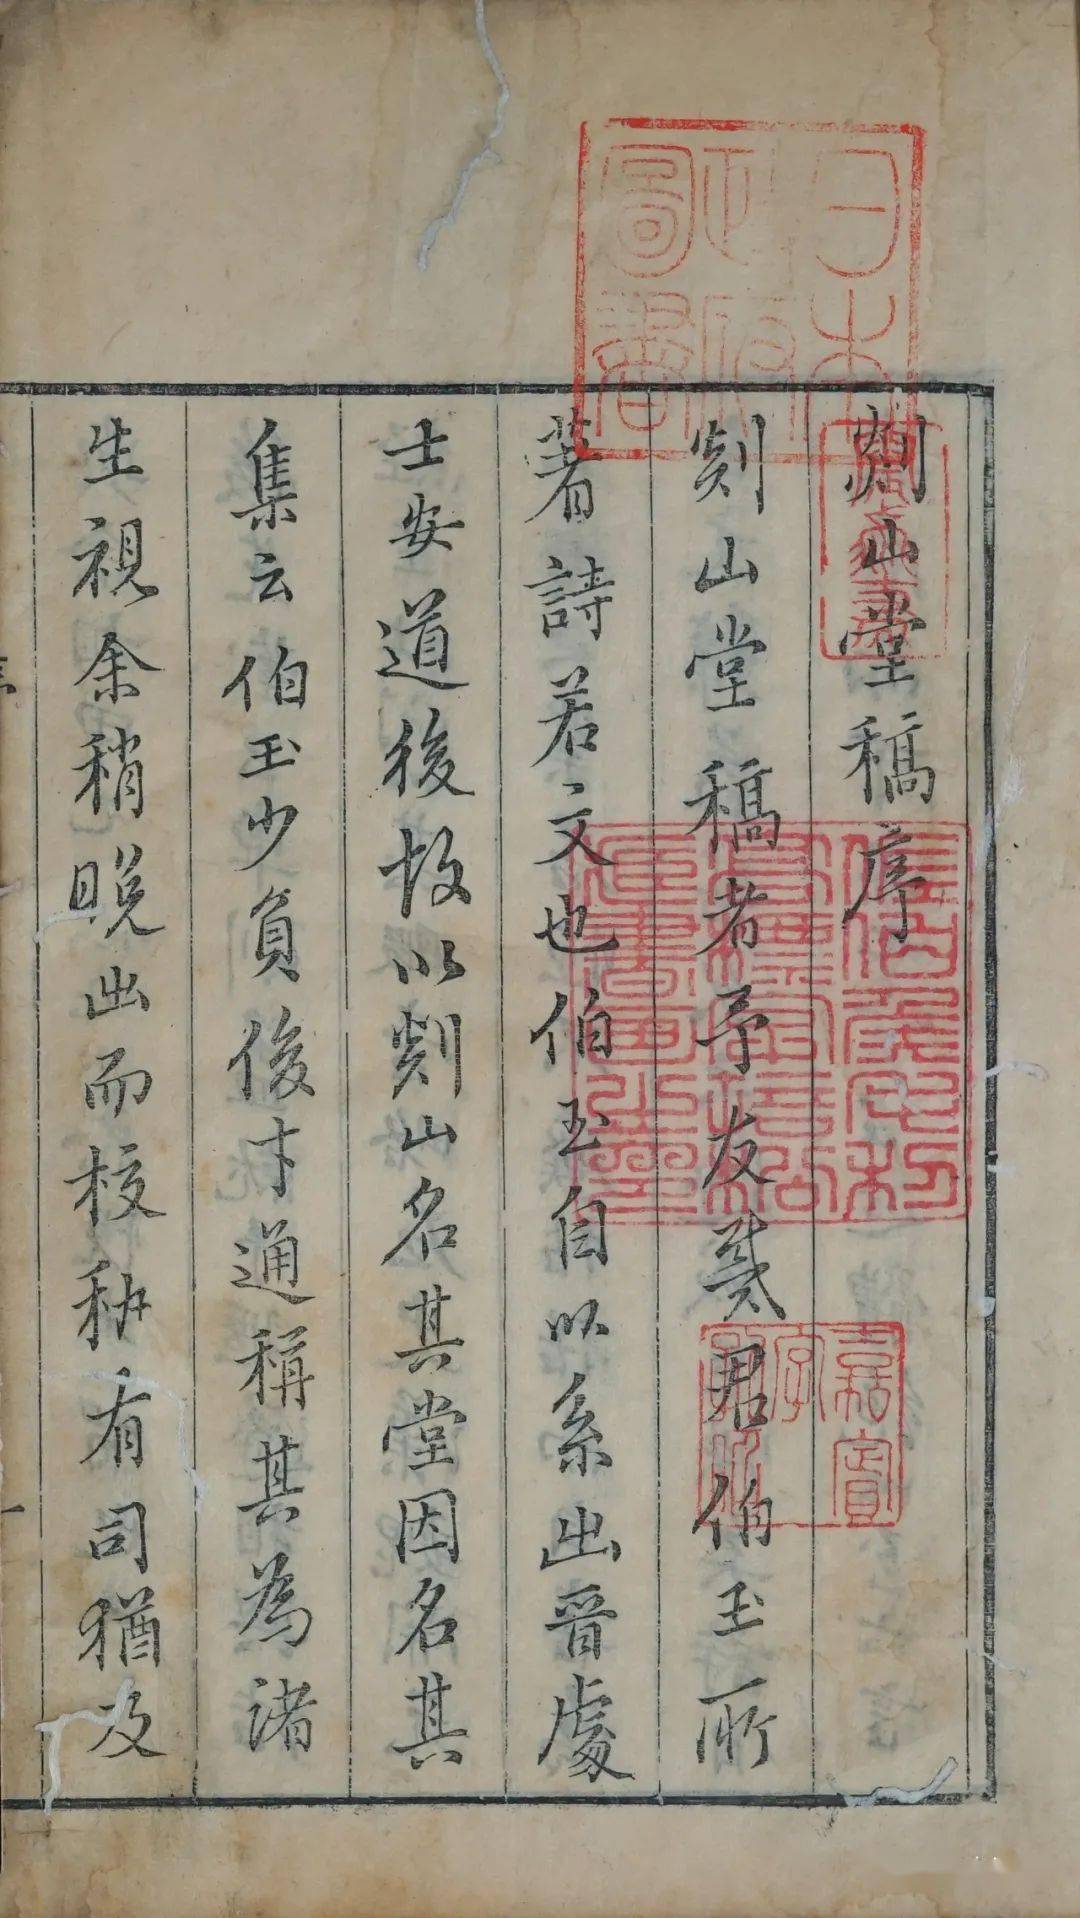 日本政府圖書
剡山堂稿序
剡山堂稿者予友戴君伯玉所
著詩若文也伯玉自以系出晉處
士安道後故以剡山名其堂因名其
集云伯玉少負俊才通稱其為諸
生視余稍晚出而校秇有司猶及